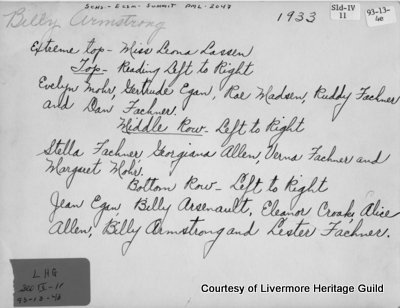 Billy Armstrong
SCHS - ELEM - SUMMIT PML - 2049
1933
Sld-IV
11
93-13-
4e
Extreme top - Miss Leona Lassen
Top - Reading Left to Right
Evelyn Mohr, Gertrude Egan, Rae Madsen, Ruddy Fachner
and Dan Fachner.
Middle Row - Left to Right
Stella Fachner Georgiana Allen, Verna Fachner and
Margaret Mohr.
Bottom Row - Left to Right
Jean Egan, Billy Arsenault, Eleanor Croak, Alice
Allen, Billy Armstrong and Lester Fachner.
LHG
93-13-4e
Courtesy of Livermore Heritage Guild